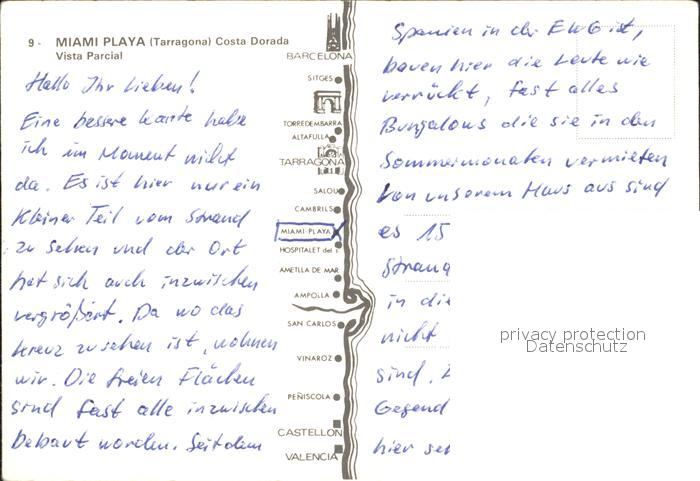 9 - MIAMI PLAYA (Tarragona) Costa Dorada
Vista Parcial
Hallo Ihr Lieben!
Eine bessere Karte habe
ich im Moment nicht
da. Es ist hier nur ein
kleiner Teil vom Strand
zu sehen und der Ort
hat sich auch inzwischen
vergrößert. Da wo das
Kreuz zu sehen ist, wohnen
wir. Die freien Flächen
sind fast alle inzwischen
bebaut worden. Seitdem
BARCELONA
SITGES
TORREDEMBARRA
ALTAFULLA
TARRAGONA
SALOU
CAMBRILS
MIAMI-PLAYA X
HOSPITALET del I.
AMETLLA DE MAR
AMPOLLA
SAN CARLOS
VINAROZ
PEÑISCOLA
CASTELLON
VALENCIA
Spanien in der EWG ist,
bauen hier die Leute wie
verrückt, fast alles
Bungalows die sie in den
Sommermonaten vermieten
Von unserem Haus aus sind
es 15
Strand
in die
nicht
sind.
Gegend
hier
privacy protection
Datenschutz